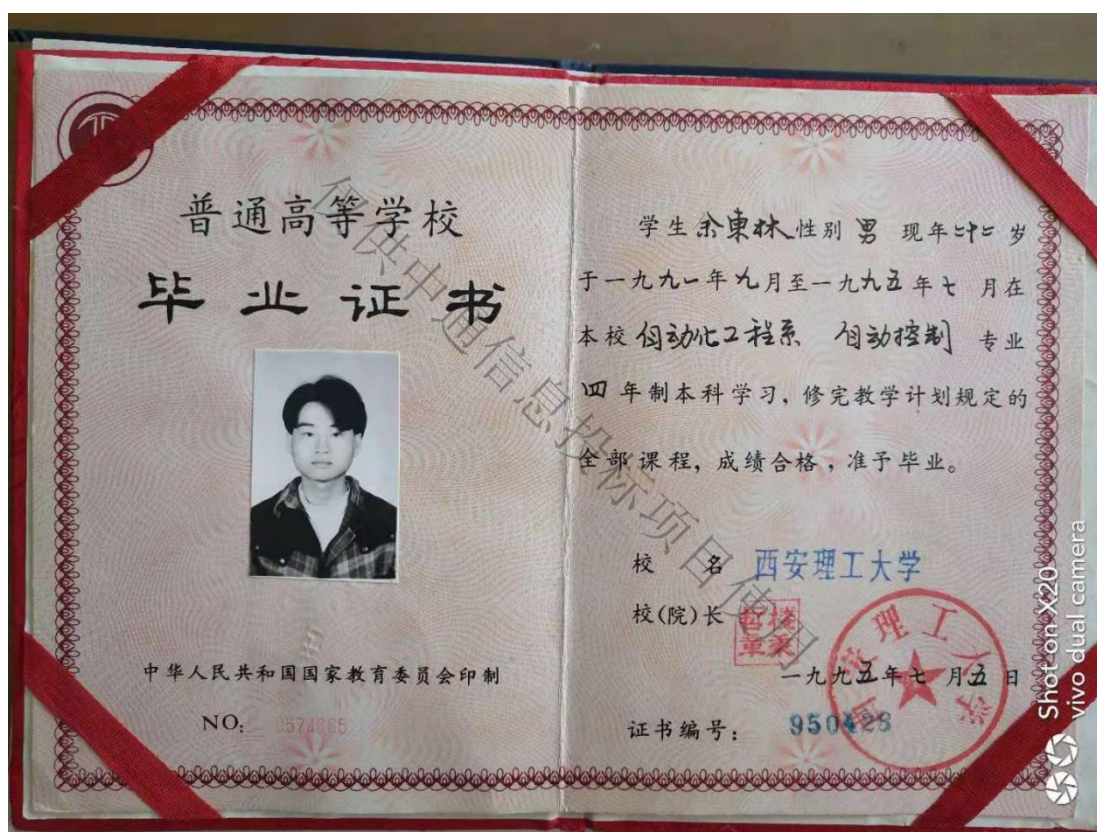 普通高等学校
毕业证书
中华人民共和国国家教育委员会印制
NO: 0574665
学生余东林性别 男 现年二十二岁
于一九九一年九月至一九九五年七月在
本校 自动化工程系 自动控制 专业
四年制本科学习，修完教学计划规定的
全部课程，成绩合格，准予毕业。
校 名 西安理工大学
校(院)长
一九九五年七月五日
证书编号： 950428
仅供中通信息投标项目使用
Shot on X20
vivo dual camera